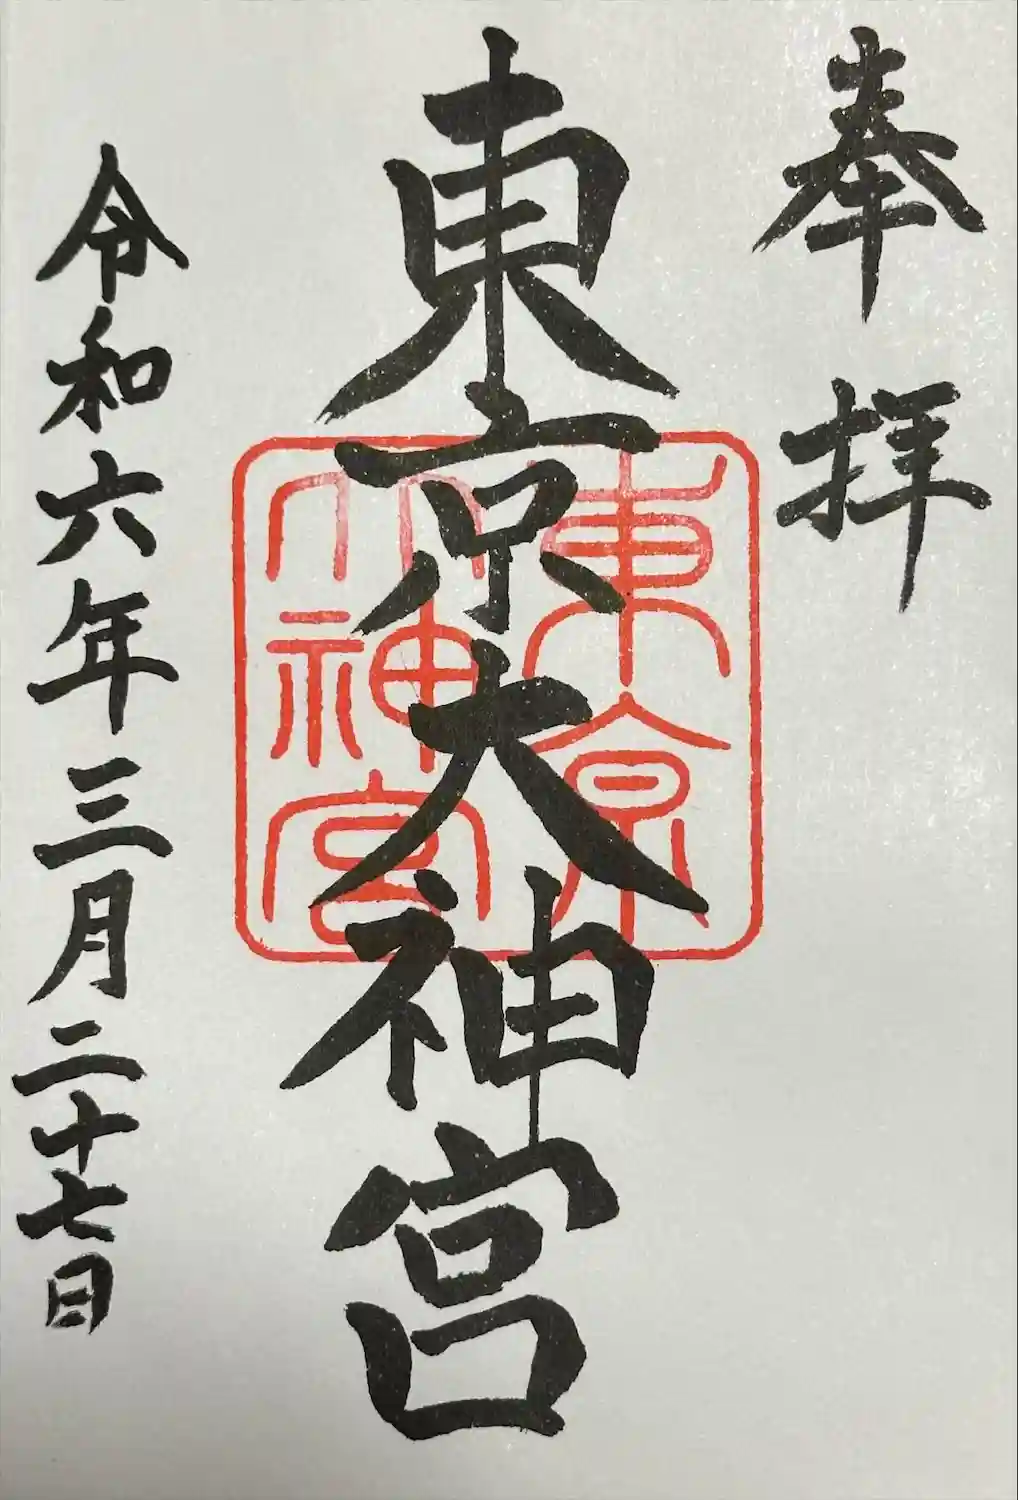 奉拝
東京大神宮
東京
大神宮
令和六年三月二十七日